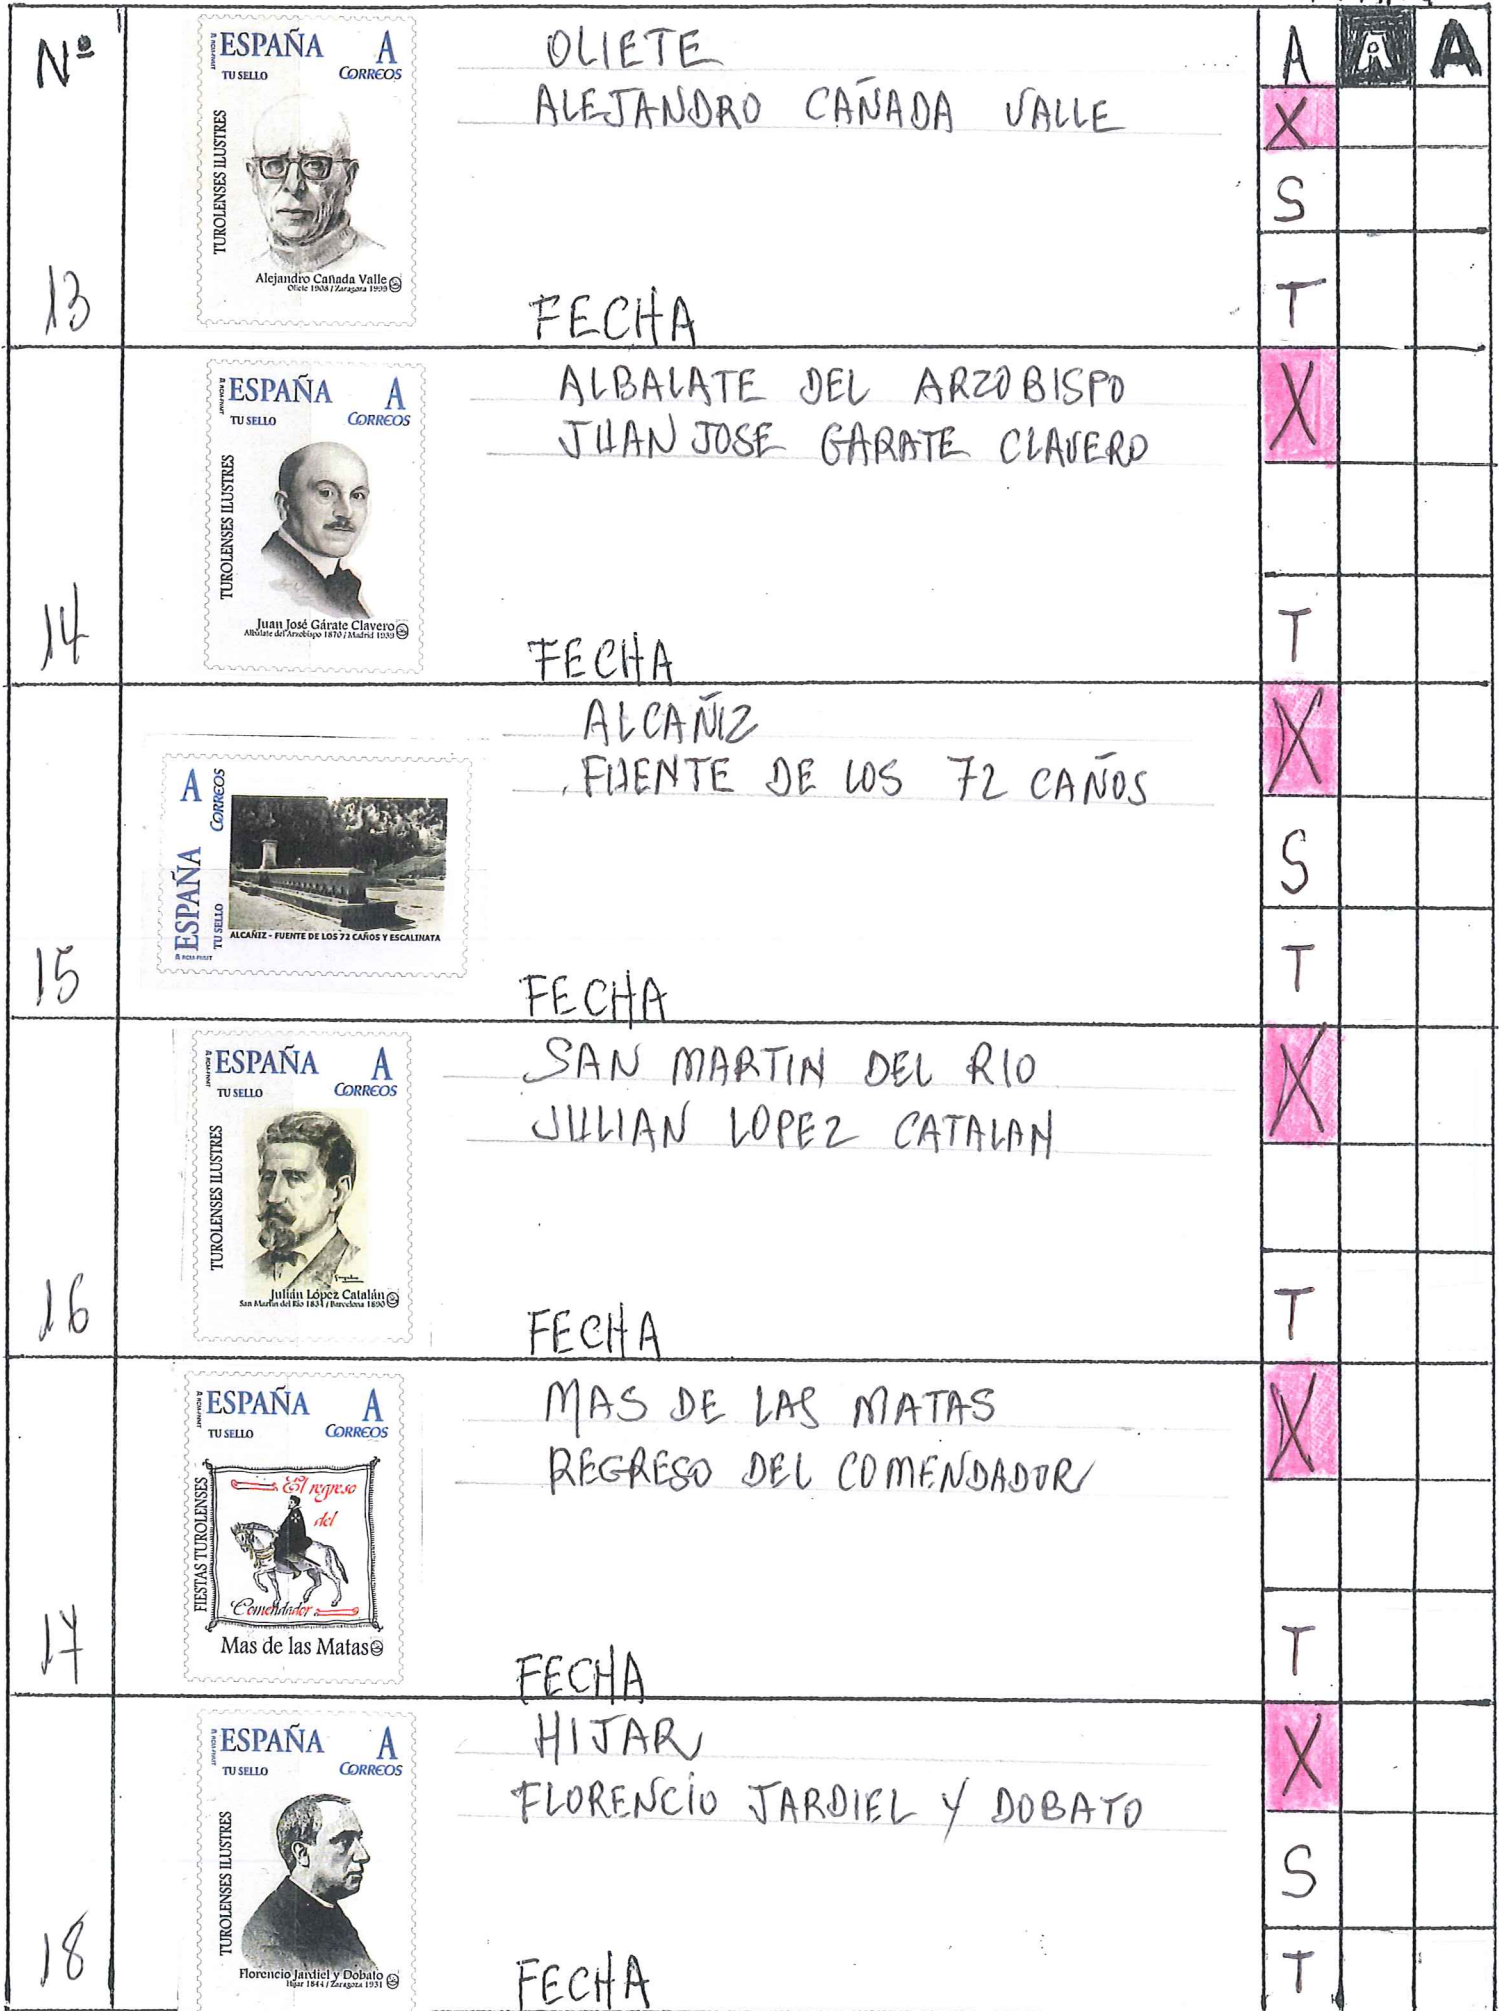 Nº
A A A
ESPAÑA A
TU SELLO CORREOS
TUROLENSES ILUSTRES
Alejandro Cañada Valle
Oliete 1908 / Zaragoza 1999
OLIETE
ALEJANDRO CAÑADA VALLE
X
S
T
13
FECHA
ESPAÑA A
TU SELLO CORREOS
TUROLENSES ILUSTRES
Juan José Gárate Clavero
Albalate del Arzobispo 1870 / Madrid 1939
ALBALATE DEL ARZOBISPO
JUAN JOSE GARATE CLAVERO
X
T
14
FECHA
A CORREOS
ESPAÑA
TU SELLO
ALCAÑIZ - FUENTE DE LOS 72 CAÑOS Y ESCALINATA
ALCAÑIZ
FUENTE DE LOS 72 CAÑOS
X
S
T
15
FECHA
ESPAÑA A
TU SELLO CORREOS
TUROLENSES ILUSTRES
Julián López Catalán
San Martín del Río 1834 / Barcelona 1890
SAN MARTIN DEL RIO
JULIAN LOPEZ CATALAN
X
T
16
FECHA
ESPAÑA A
TU SELLO CORREOS
FIESTAS TUROLENSES
El regreso
del
Comendador
Mas de las Matas
MAS DE LAS MATAS
REGRESO DEL COMENDADOR
X
T
17
FECHA
ESPAÑA A
TU SELLO CORREOS
TUROLENSES ILUSTRES
Florencio Jardiel y Dobato
Hijar 1844 / Zaragoza 1931
HIJAR
FLORENCIO JARDIEL Y DOBATO
X
S
T
18
FECHA